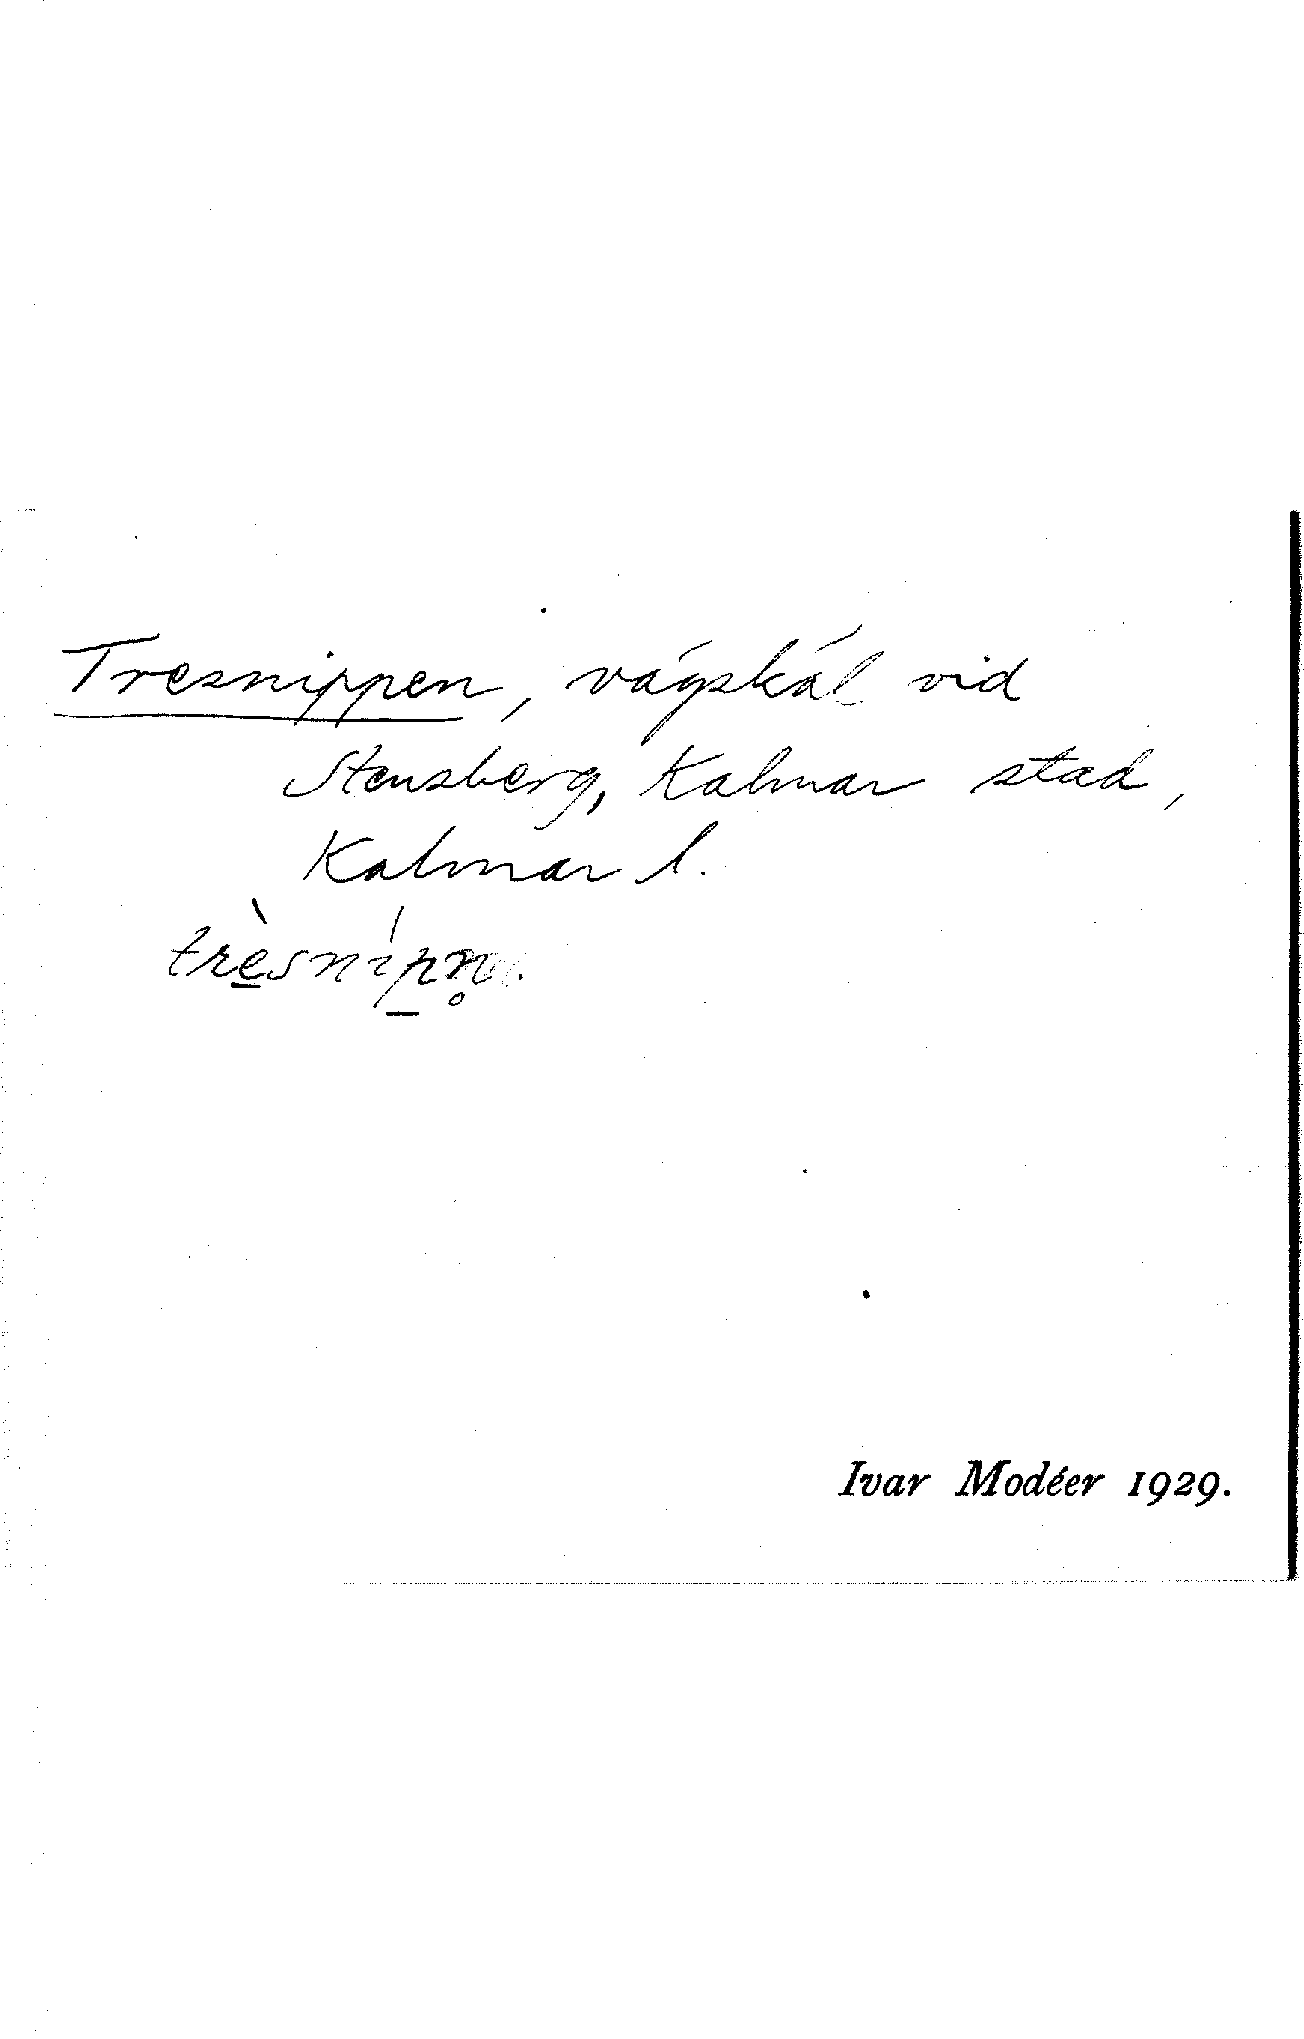 Tresnippen, vägskäl vid
Stensberg, Kalmar stad,
Kalmar l.
trè̱sníp̱n̥.
Ivar Modéer 1929.